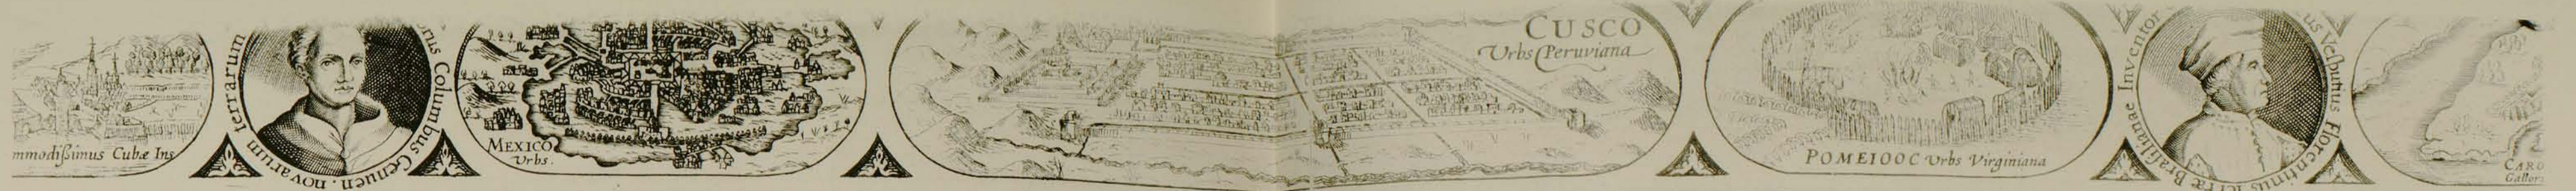 mmodißimus Cubæ Ins
Columbus Genuen. novarum terrarum
MEXICO
Urbs.
CUSCO
Urbs Peruviana
POMEIOOC Urbs Virginiana
Florentinus terræ Brasilianæ Inventor
CARO